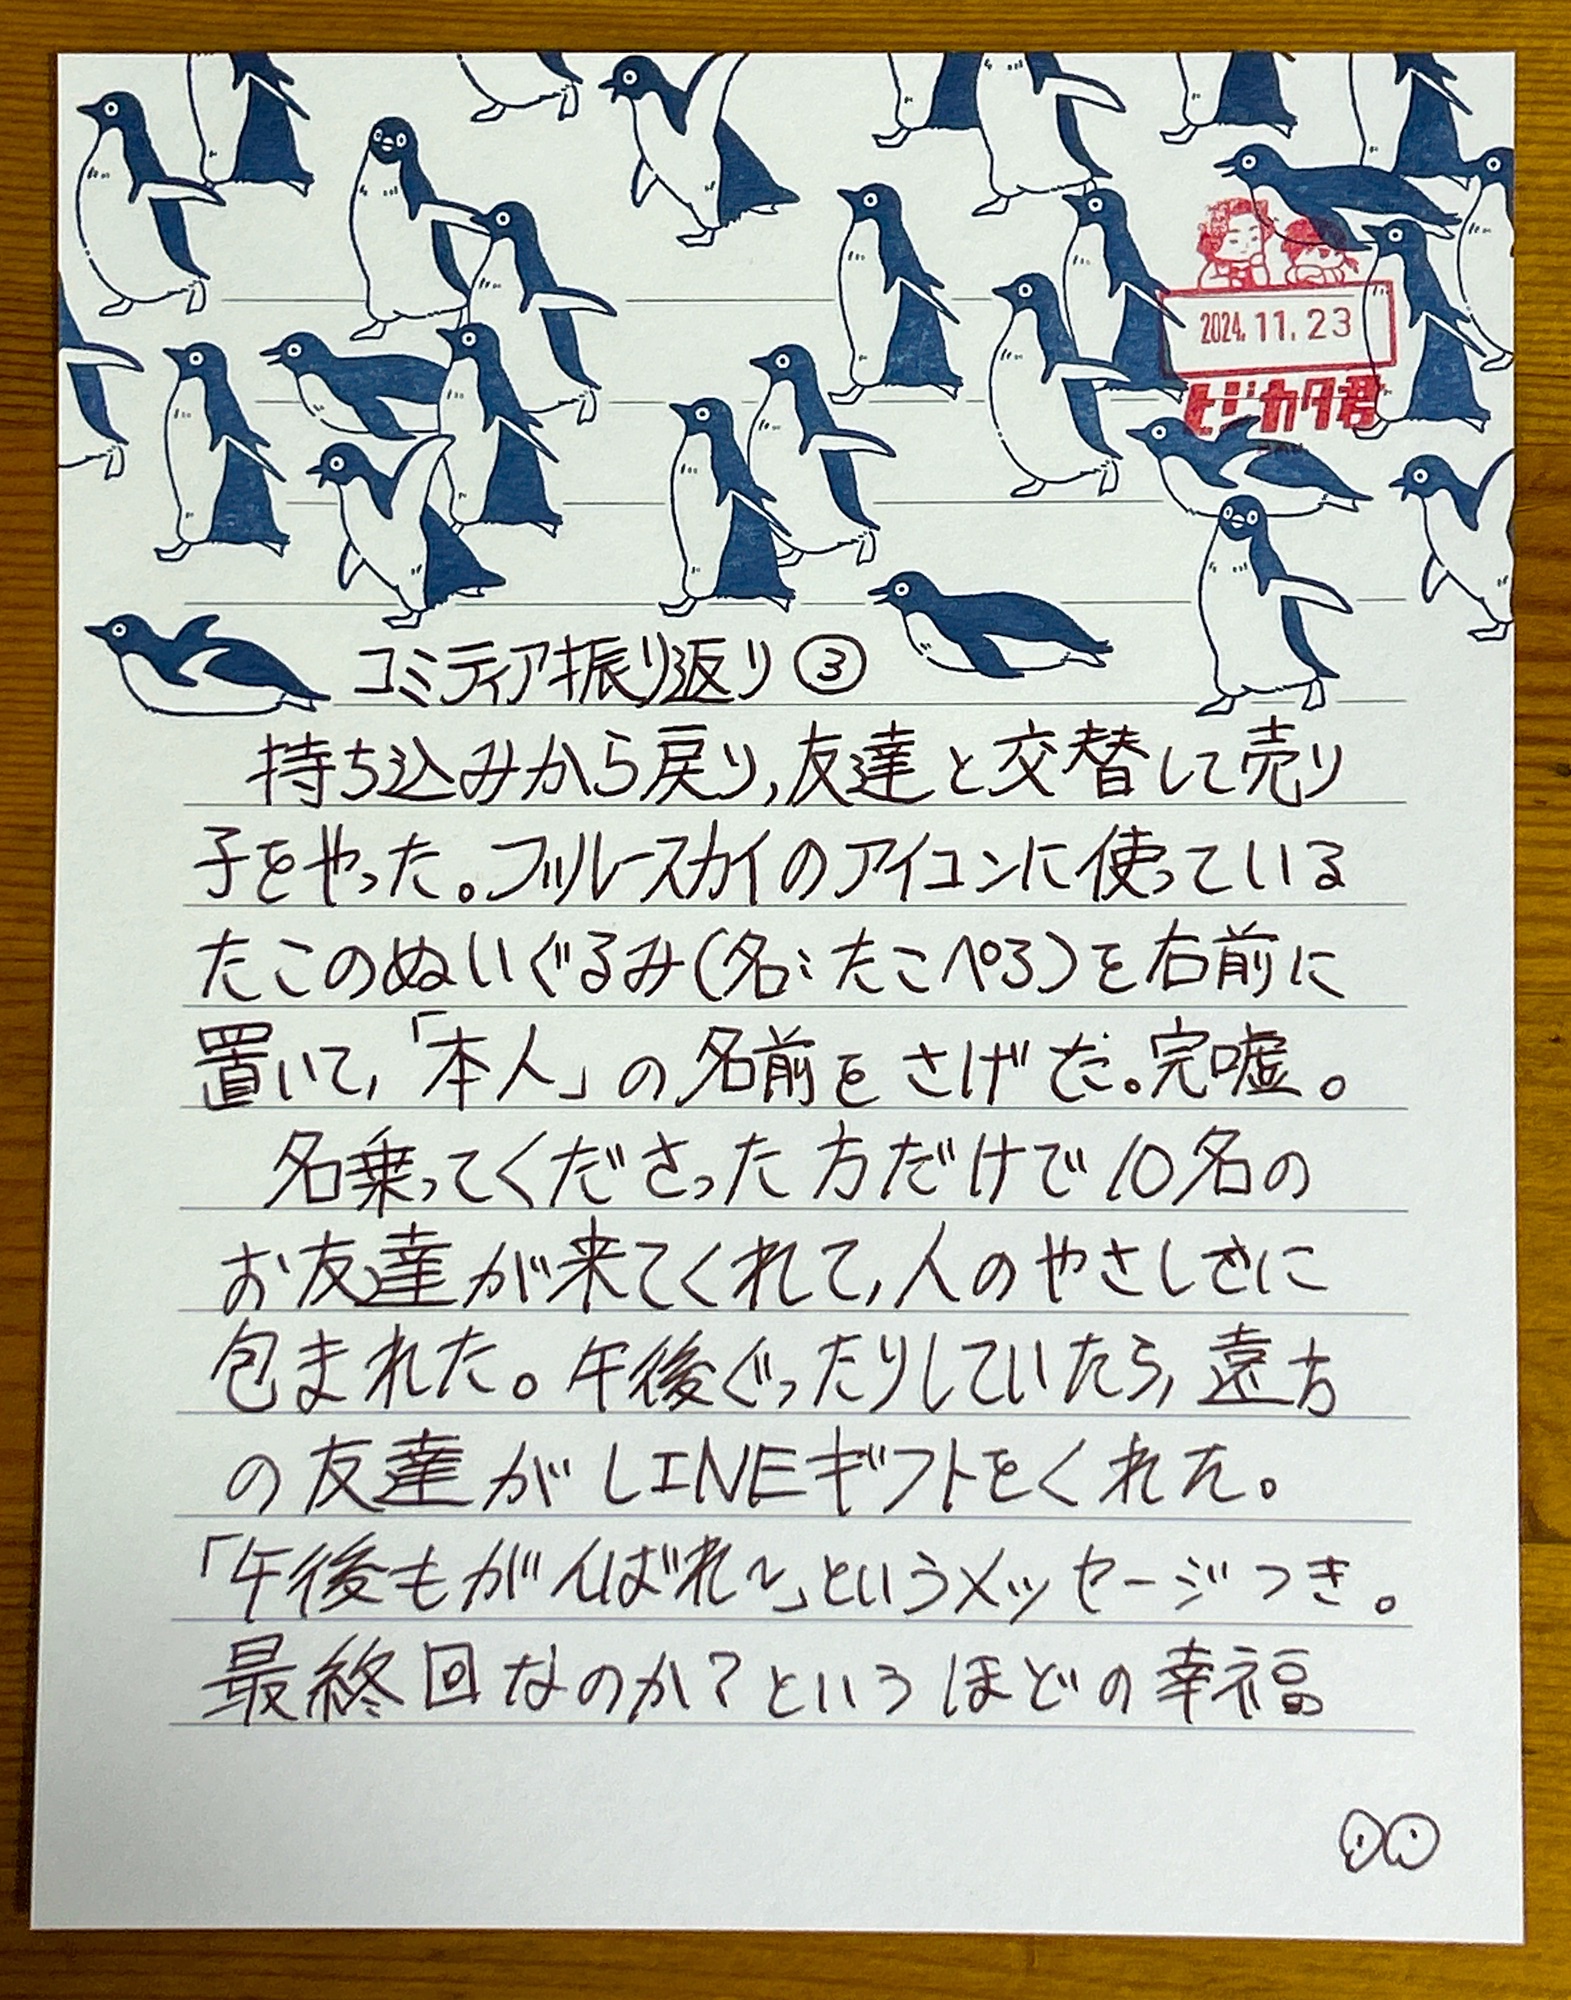 2024.11.23
ヒジカタ君
コミティア振り返り③
持ち込みから戻り,友達と交替して売り
子をやった。ブルースカイのアイコンに使っている
たこのぬいぐるみ(名:たこぺろ)を右前に
置いて,「本人」の名前をさげだ。完嘘。
名乗ってくださった方だけで10名の
お友達が来てくれて,人のやさしさに
包まれた。午後ぐったりしていたら,遠方
の友達がLINEギフトをくれた。
「午後もがんばれ〜」というメッセージつき。
最終回なのか?というほどの幸福